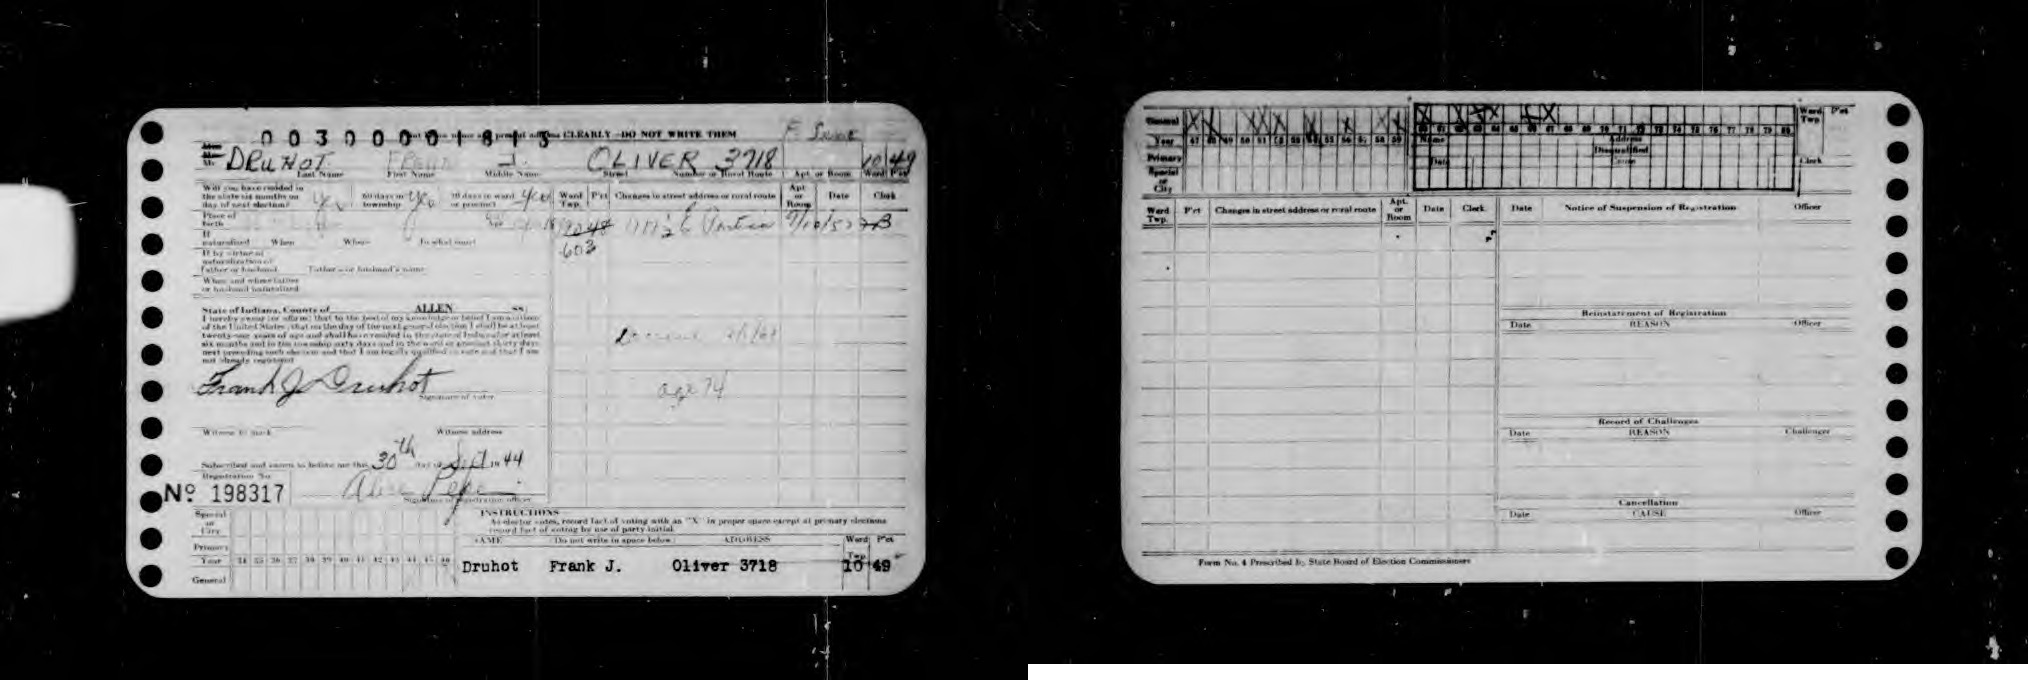 00300001813
CLEARLY—DO NOT WRITE THEM
DRUHOT Frank J. OLIVER 3718 10 49
Last Name First Name Middle Name Street Number or Rural Route Apt. or Room Ward P'ct
Will you have resided in the state six months on day of next election? yes 60 days in township yes 30 days in ward or precinct yes
Ward Twp. P'ct Changes in street address or rural route Apt. or Room Date Clerk
Place of birth
603
If naturalized When Where In what court
If by virtue of naturalization of father or husband Father's or husband's name
When and where father or husband naturalized
State of Indiana, County of ALLEN SS:
I hereby swear (or affirm) that to the best of my knowledge or belief I am a citizen
of the United States; that on the day of the next general election I shall be at least
twenty-one years of age and shall have resided in the state of Indiana for at least
six months and in the township sixty days and in the ward or precinct thirty days
next preceding such election and that I am legally qualified to vote and that I am
not already registered
age 74
Frank J Druhot
Signature of voter
Witness to mark Witness address
Subscribed and sworn to before me this 30th day of 1944
Registration No.
Nº 198317
Alice
Signature of registration officer
INSTRUCTIONS
As elector votes, record fact of voting with an "X" in proper space except at primary elections
record fact of voting by use of party initial.
Special or City
Primary
Year 34 35 36 37 38 39 40 41 42 43 44 45 46
General
NAME (Do not write in space below) ADDRESS Ward Twp. P'ct
Druhot Frank J. Oliver 3718 10 49
General
Year 47 48 49 50 51 52 53 54 55 56 57 58 59
60 61 62 63 64 65 66 67 68 69 70 71 72 73 74 75 76 77 78 79 80
Ward Twp. P'ct
Name Address
Primary
Disqualified
Special or City
Date Cause Clerk
Ward Twp. P'ct Changes in street address or rural route Apt. or Room Date Clerk
Date Notice of Suspension of Registration Officer
Reinstatement of Registration
Date REASON Officer
Record of Challenges
Date REASON Challenger
Cancellation
Date CAUSE Officer
Form No. 4 Prescribed by State Board of Election Commissioners